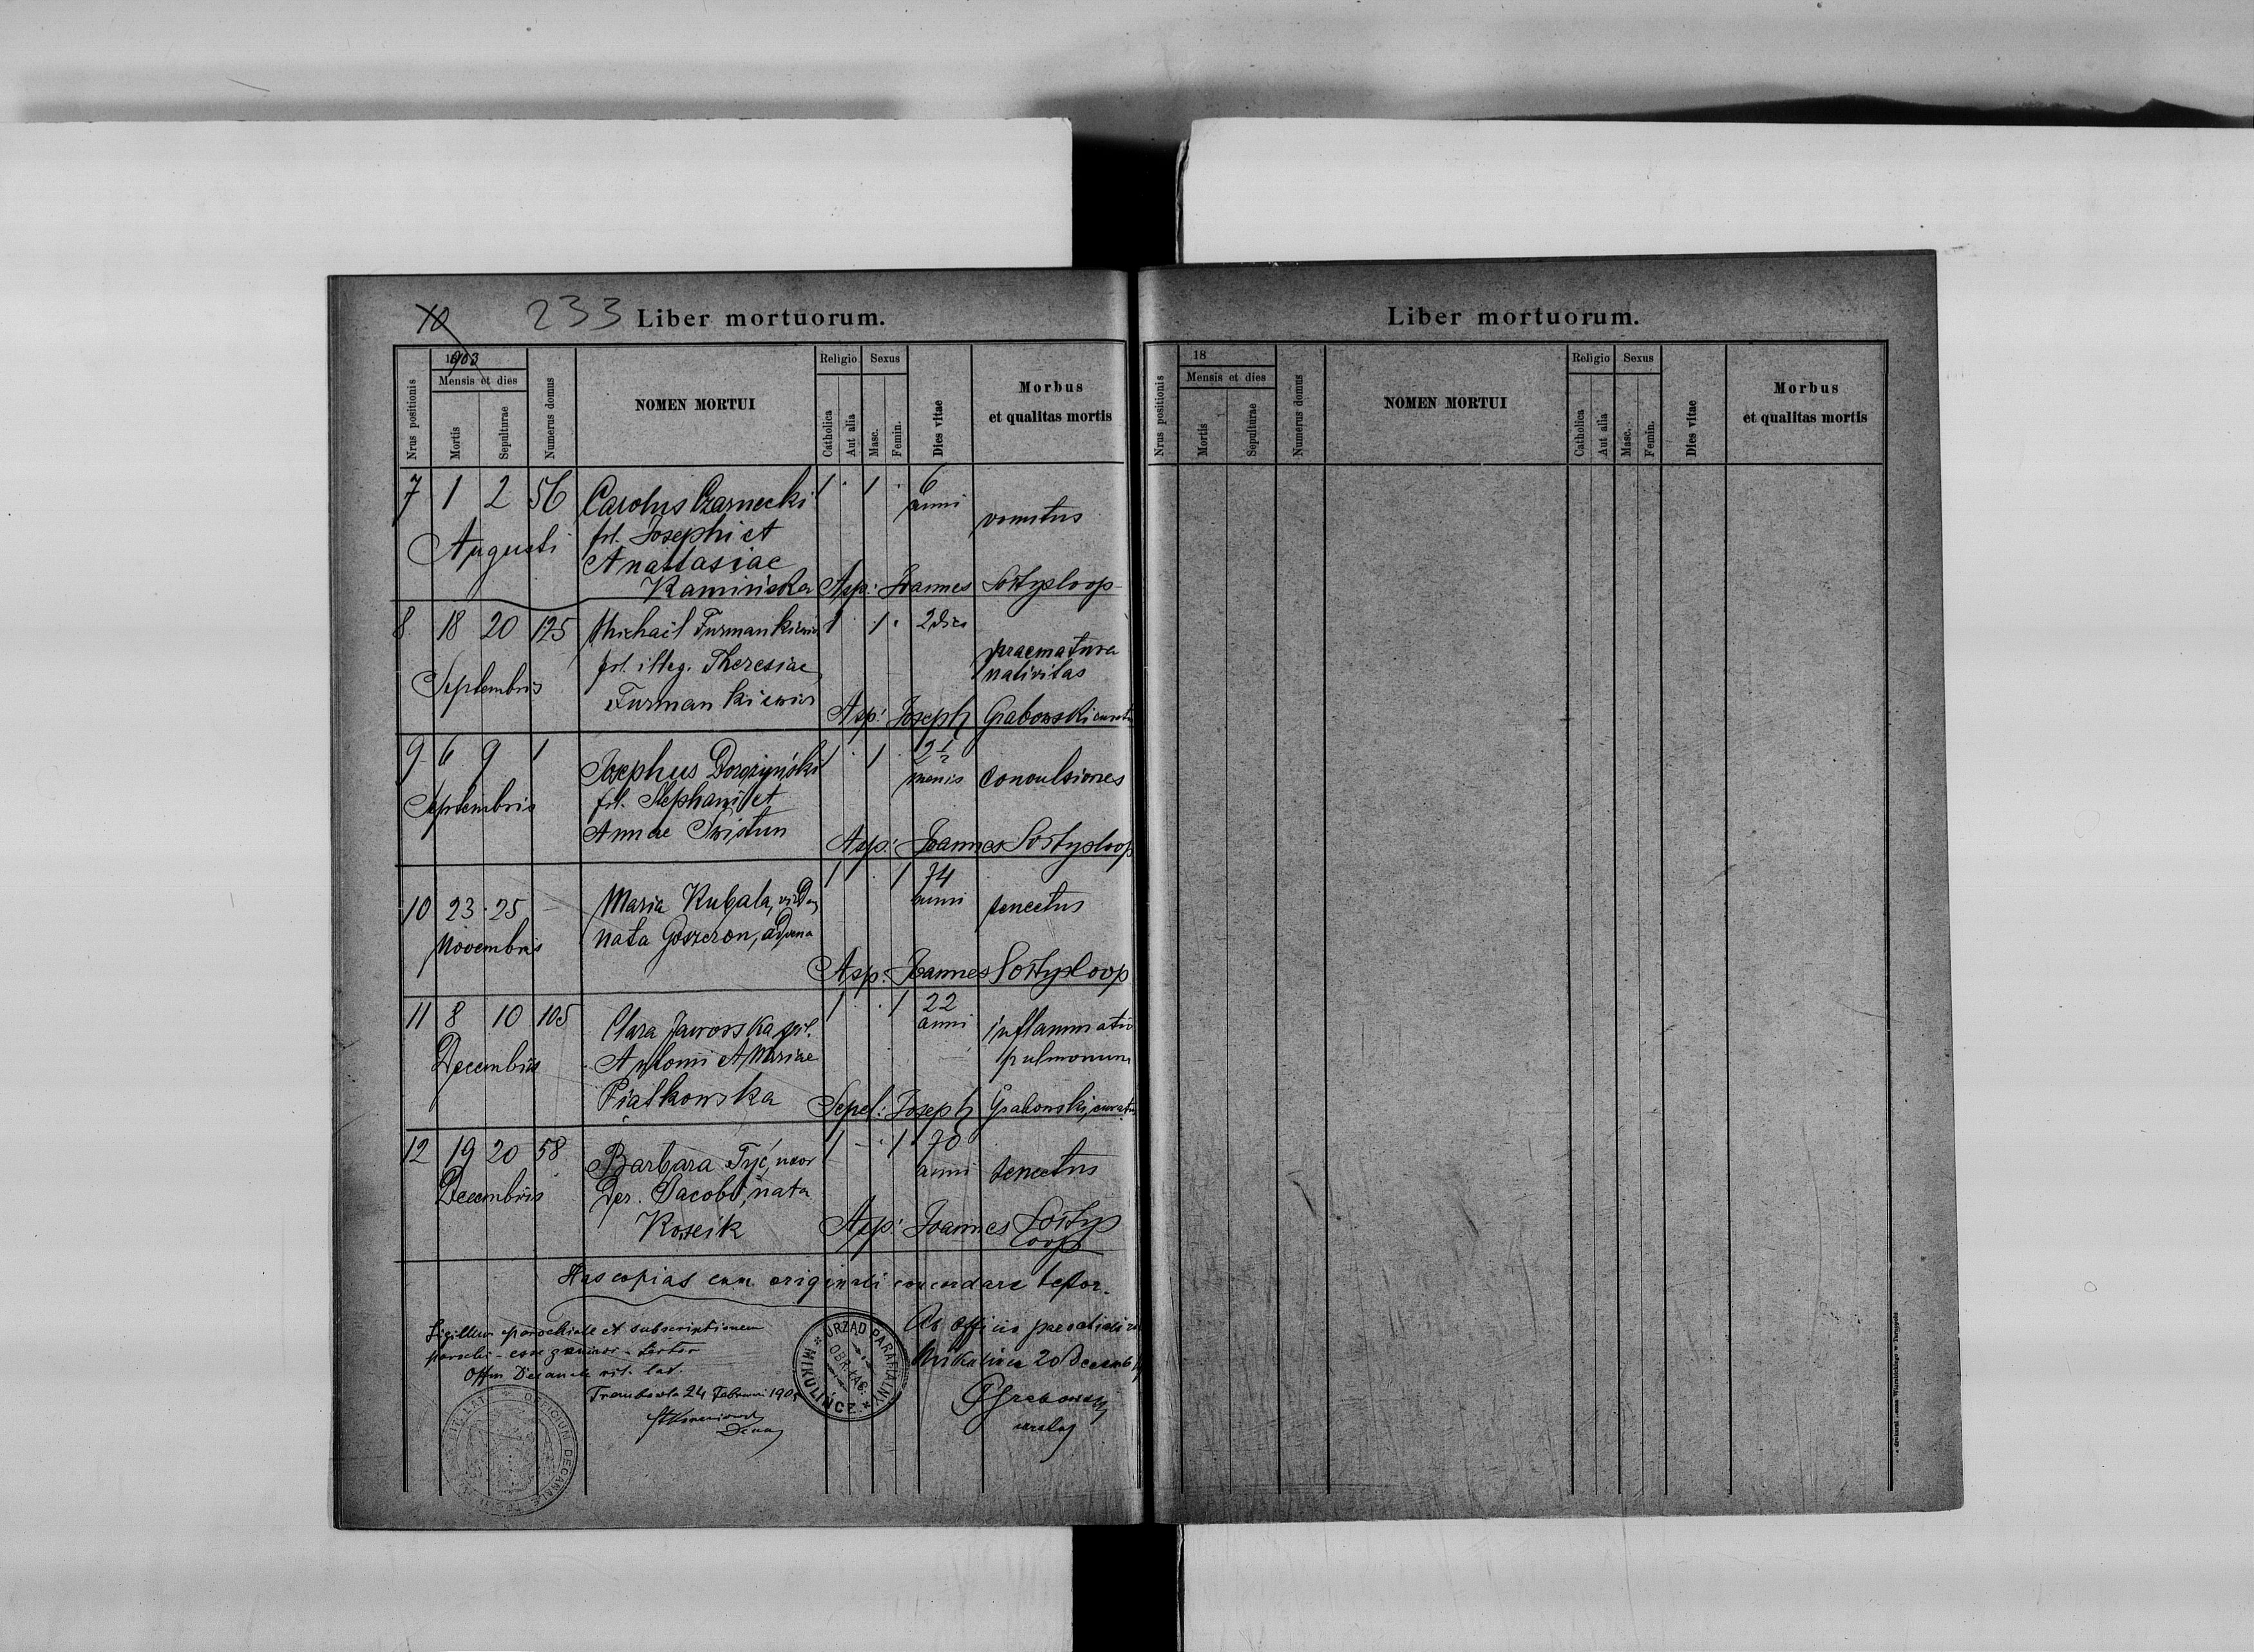 10 233 Liber mortuorum.
1903
Nrus positionis Mensis et dies Mortis Sepulturae Numerus domus NOMEN MORTUI Religio Catholica Aut alia Sexus Masc. Femin. Dies vitae Morbus et qualitas mortis
7 1 2 56 Carolus Czarnecki 1 . 1 . 6
anni
vomitus
Augusti fil. Josephi et
Anastasiae
Kamińska Asp: Joannes
8 18 20 125 Michael Furmankiewicz 1 . 1 . 2 dies
praematura
fil. illeg. Theresiae nativitas
Septembris
Furmankiewicz
Asp: Joseph Grabowski
9 6 9 1 Josephus 1 . 1 . 2½
mensis convulsiones
Septembris fil. Stephani et
Annae Świstun
Asp: Joannes
10 23 . 25 - Maria Kubala, 1 . . 1 74
anni senectus
Novembris nata advena
Asp: Joannes
11 8 10 105 Clara Jaworska fil. 1 . . 1 22
anni inflammatio
Decembris Antonii et Mariae pulmonum
Piatkowska Sepel: Joseph Grabowski, curatus
12 19 20 58 Barbara Tyć, uxor 1 - . 1 70
anni senectus
Decembris Jacobi, nata
Asp: Joannes
Has copias cum originali concordare testor.
Sigillum parochiale et subscriptionem
parochi esse testor
Offm Decanale rit. lat.
Trembowla 24 Februarii
Ab Officio parochiali
Mikulince 20
Grabowski
URZĄD PARAFIALNY OBR. ŁAC. MIKULIŃCE
OFFICIUM DECANALE RIT. LAT.
Liber mortuorum.
18
Nrus positionis Mensis et dies Mortis Sepulturae Numerus domus NOMEN MORTUI Religio Catholica Aut alia Sexus Masc. Femin. Dies vitae Morbus et qualitas mortis